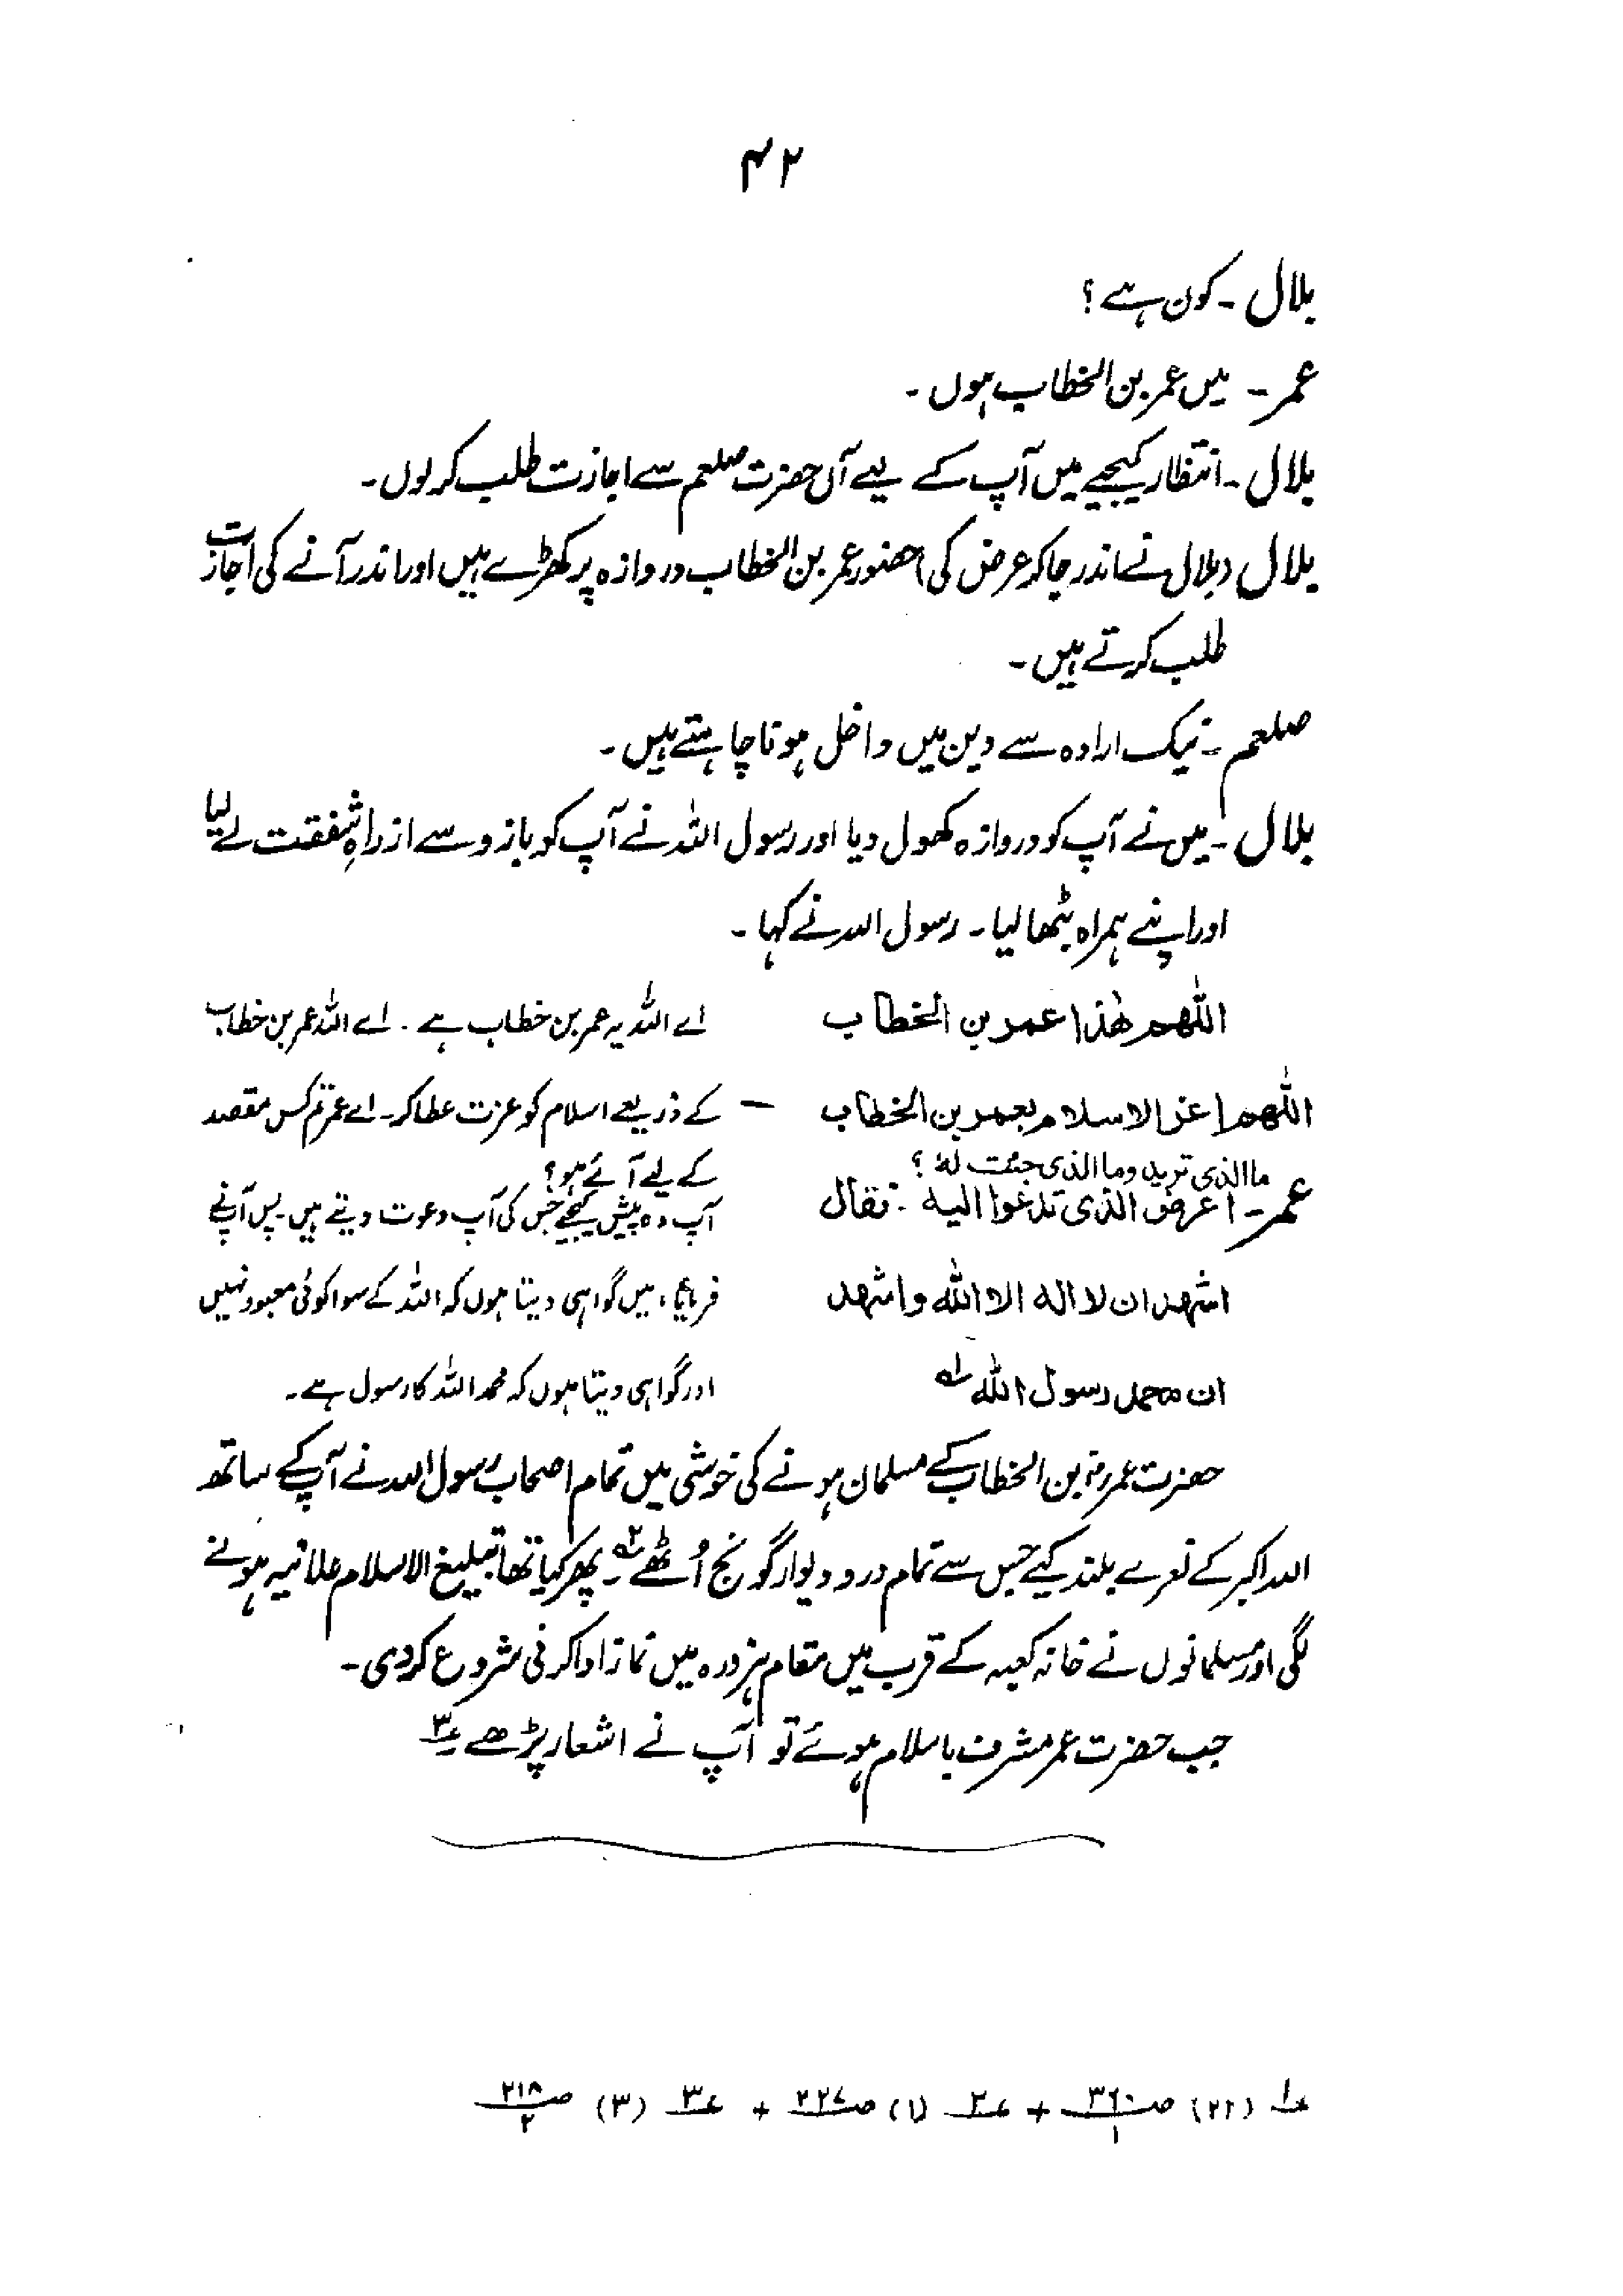 ۴۲
بلال ۔ کون ہے ؟
عمر ۔ میں عمر بن الخطاب ہوں ۔
بلال ۔ انتظار کیجیے میں آپ کے لیے آں حضرت صلعم سے اجازت طلب کر لوں ۔
بلال (بلال نے اندر جا کر عرض کی) حضور عمر بن الخطاب دروازہ پر کھڑے ہیں اور اندر آنے کی اجازت
طلب کرتے ہیں ۔
صلعم ۔ نیک ارادہ سے دین میں داخل ہونا چاہتے ہیں ۔
بلال ۔ میں نے آپ کو دروازہ کھول دیا اور رسول اللہ نے آپ کو بازو سے از راہِ شفقت لے لیا
اور اپنے ہمراہ بٹھا لیا ۔ رسول اللہ نے کہا ۔
اللّٰھم ھٰذا عمر بن الخطاب اے اللہ یہ عمر بن خطاب ہے ۔ اے اللہ عمر بن خطاب
اللّٰھم اعز الاسلام بعمر بن الخطاب — کے ذریعے اسلام کو عزت عطا کر ۔ اے عمر تم کس مقصد
ما الذی ترید وما الذی جئت لہٗ ؟ کے لیے آئے ہو ؟
عمر ۔ اعرض الذی تدعوا الیہ : فقال آپ وہ پیش کیجیے جس کی آپ دعوت دیتے ہیں ۔ پس آپ نے
اشھد ان لا الہ الا اللّٰہ واشھد فرمایا ، میں گواہی دیتا ہوں کہ اللہ کے سوا کوئی معبود نہیں
ان محمد رسول اللّٰہ ؎۱ اور گواہی دیتا ہوں کہ محمد اللہ کا رسول ہے ۔
حضرت عمرؓ بن الخطاب کے مسلمان ہونے کی خوشی میں تمام اصحاب رسول اللہ نے آپ کے ساتھ
اللہ اکبر کے نعرے بلند کیے جس سے تمام در و دیوار گونج اُٹھے ؎۲ ۔ پھر کیا تھا تبلیغ الاسلام علانیہ ہونے
لگی اور مسلمانوں نے خانہ کعبہ کے قرب میں مقام ہزورہ میں نماز ادا کرنی شروع کر دی ۔
جب حضرت عمر مشرف باسلام ہوئے تو آپ نے اشعار پڑھے ؎۳
؎۱ (۲۲) ص ۳۶۰/۱ + ؎۲ (۱) ص ۲۲۷ + ؎۳ (۳) ص ۲۱۸/۲